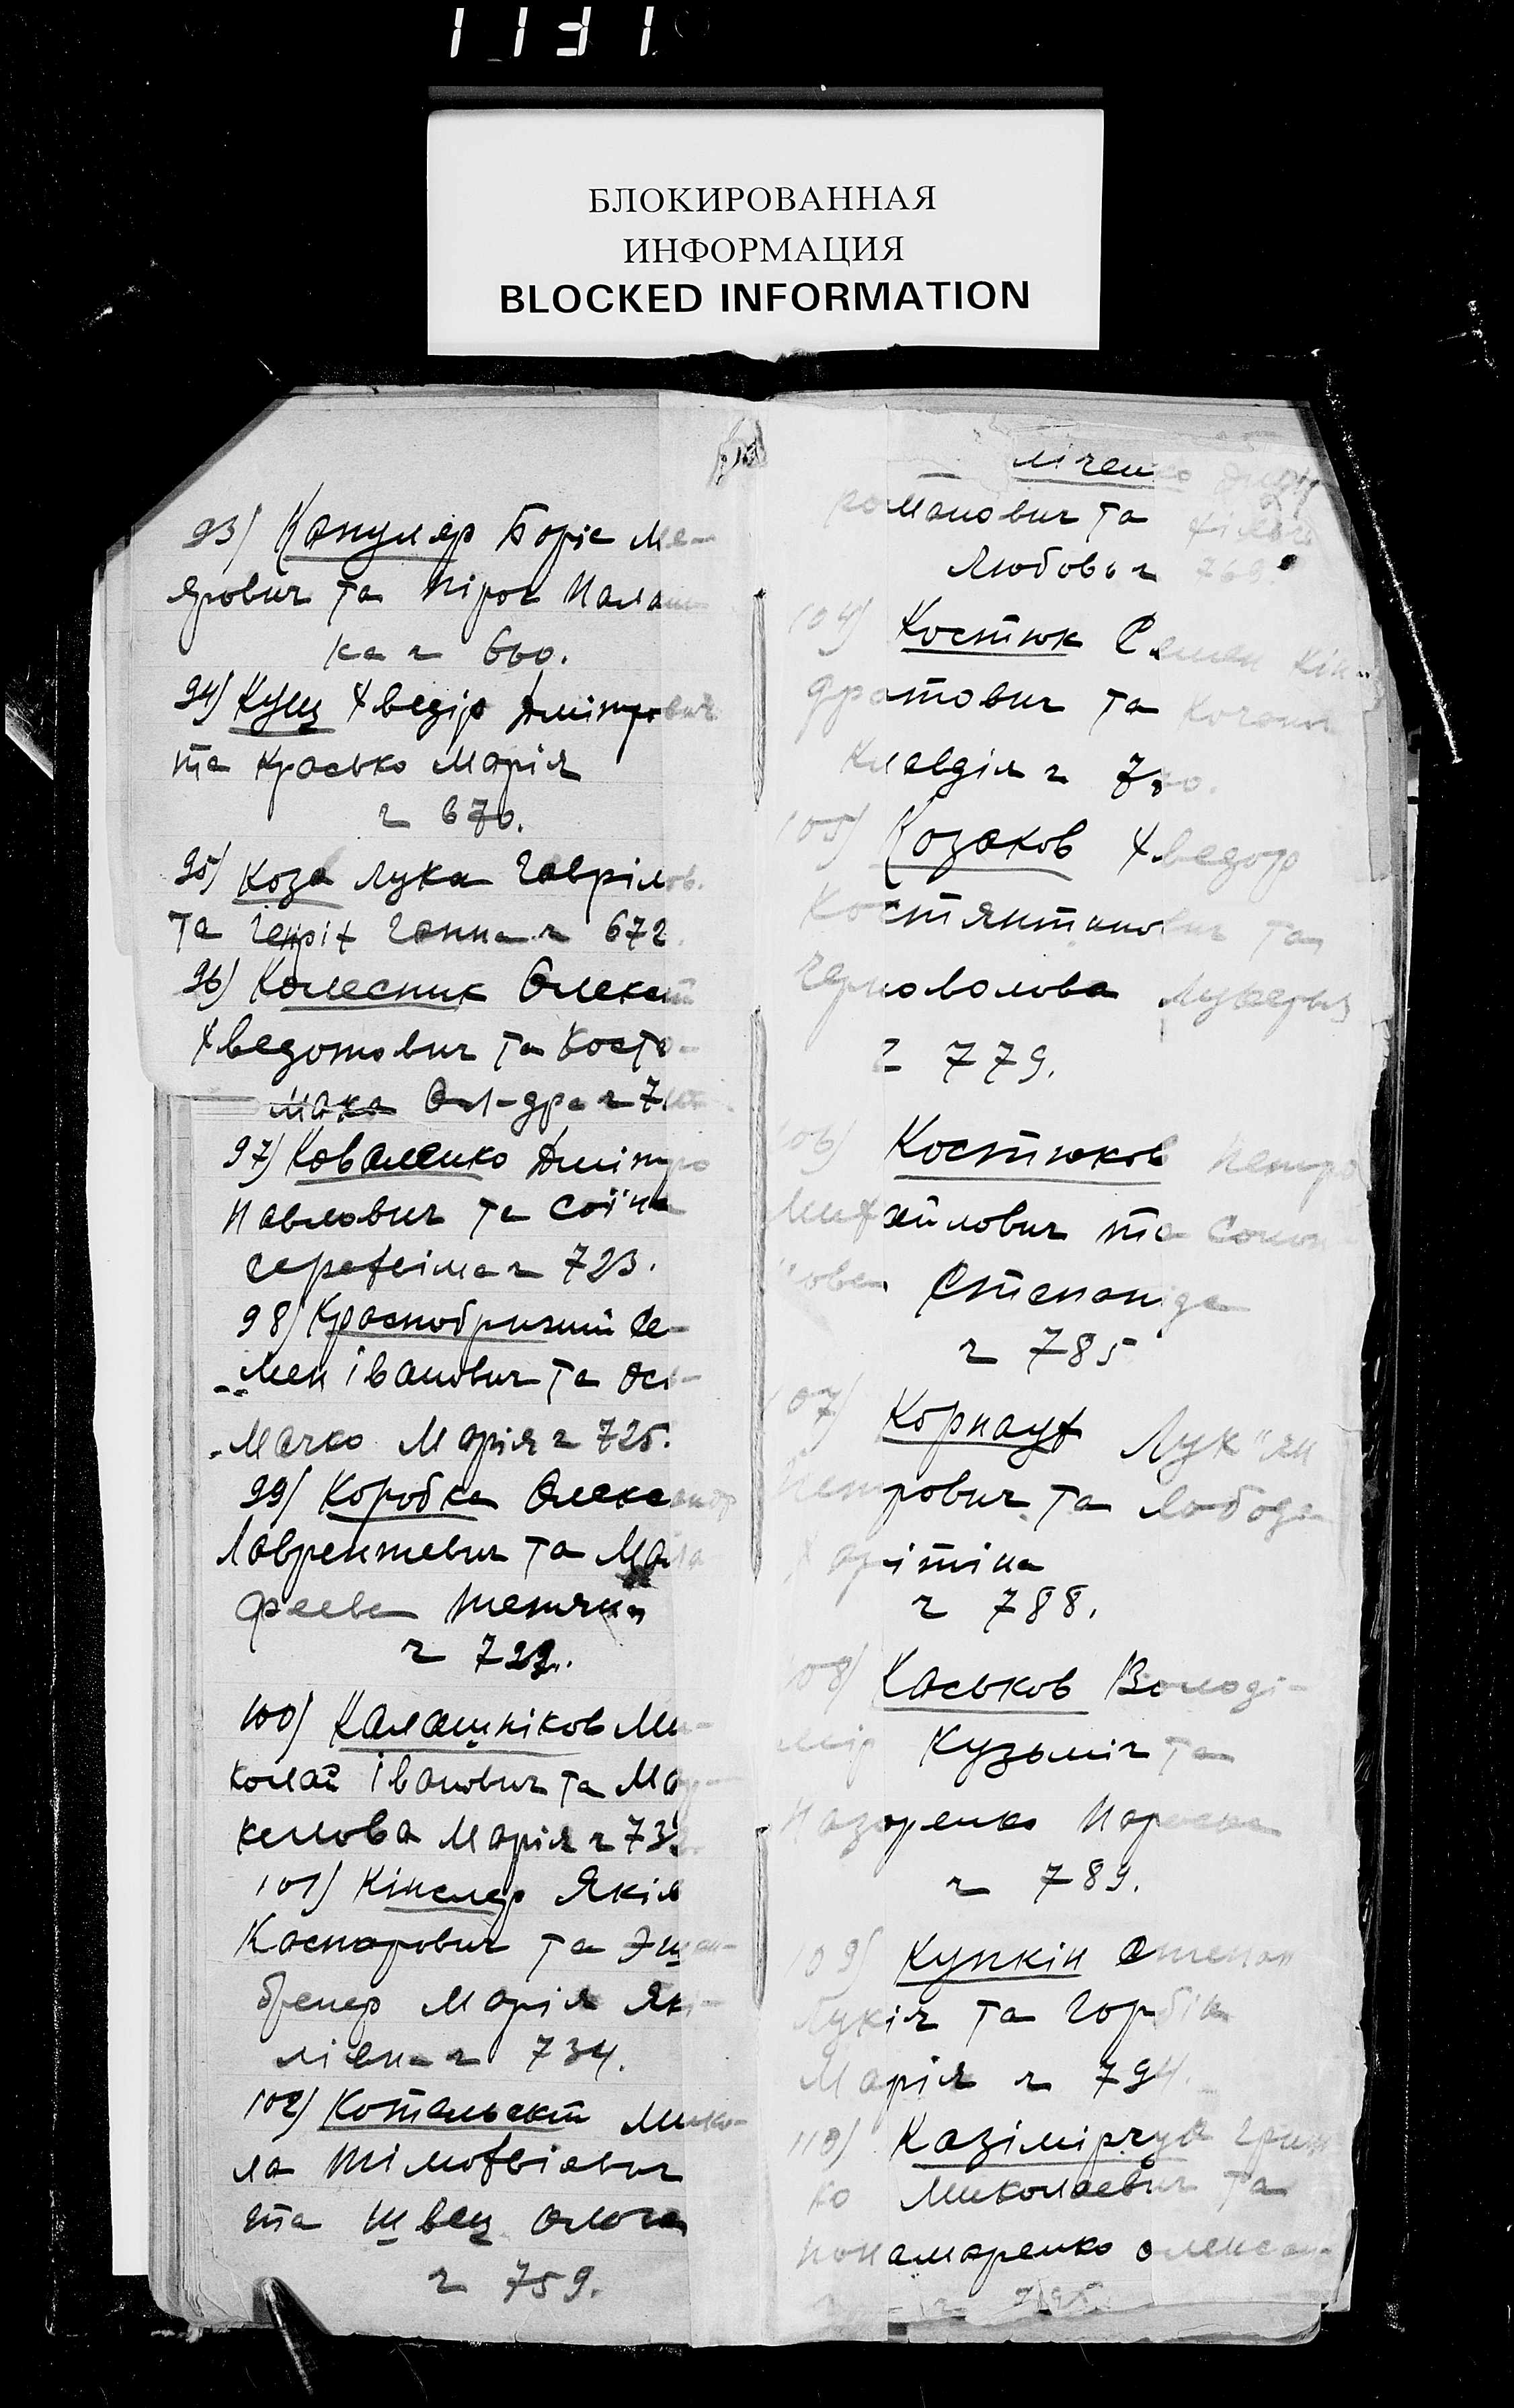 БЛОКИРОВАННАЯ
ИНФОРМАЦИЯ
BLOCKED INFORMATION
93) Капуляр Боріс Ме-
ярович та Пірог Палаш
ка г 660.
94) Кущ Хведір Дмітрович
та Красько Марія
г 670.
95) Коза Лука Гаврілов.
та Генріх Ганна г 672.
96) Колесник Олексій
Хведотович та Косто-
мака Ол-дра г
97) Коваленко Дмітро
Павлович та
Серехвіма г 723.
98) Краснобризкий Се-
мен Іванович та Ось-
мачко Марія г 725.
99) Коробка Олександр
Лаврентевич та Мала
феева Тетяна
г 729.
100) Калашніков Ми-
колай Іванович та Мар-
келова Марія г 73
101) Кінслер Якім
Каспарович та
бренер Марія Які-
мівна г 734.
102) Микo-
ла Тімофвіевич
та Швець Ольга
г 759.
ліченко
романович та
Любов г 769.
104) Костюк Семен Кін-
дратович та Кочано
Клавдія г
105) Козаков Хведор
Костянтинович та
Черноволова Лукерья
г 779.
106) Костюков Петро
Михайлович та
Степаніда
г 785
107) Корнаух Лук"ян
Петрович та Лобода
Харітіна
г 788.
108) Каськов Володі-
мір Кузьміч та
Назаренко Параска
г 789.
109) Купкін Степан
Лукіч та Горбін
Марія г 794.
110) Казімірчук Гриш
ко Миколаевич та
Понамаренко Олексан-
г 795